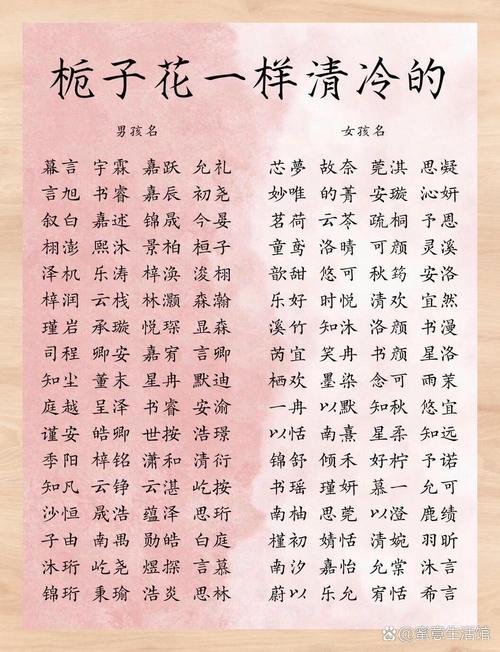 栀子花一样清冷的
男孩名 女孩名
幕言 宇霖 嘉跃 允礼 芯夢 故奈 莞淇 思凝
言旭 书睿 嘉辰 初尧 妙唯 的菁 安璇 沁妍
叙白 嘉述 锦晟 今晏 茗荷 云苓 疏桐 予恩
栩澎 熙沐 景柏 桓子 童鸢 洛晴 可颜 灵溪
泽机 乐涛 梓涣 浚栩 歆甜 悠可 秋筠 安洛
梓润 云栈 林灏 森瀚 乐好 时悦 清欢 宜然
瑾岩 承璇 悦琛 显森 溪竹 知沐 洛颜 书漫
司程 卿安 嘉宥 言卿 芮宜 笑冉 书曷 星洛
知尘 董末 星冉 默迪 栖欢 墨染 念可 雨茉
庭越 呈泽 书睿 安渝 一冉 以默 知秋 悠宜
谨安 皓卿 世按 浩璟 以恬 南熹 星柔 知远
季阳 梓铭 潇和 清衍 锦舒 倾禾 好柠 予诺
知凡 云铮 云湛 屹按 书瑶 瑾妍 慕一 允可
沙恒 晟浩 蕴泽 思珩 南柚 思莞 以澄 鹿绩
子由 南禺 勋皓 白庭 槿初 婧恬 清婉 羽昕
沐珩 屹尧 煜探 言慕 南汐 嘉怡 允棠 沐言
锦珩 秉瑜 浩炎 思林 蔚以 乐允 宥恬 希言
蜜意生活馆